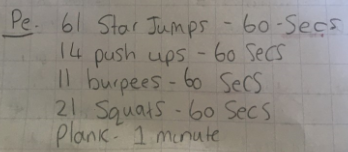 Pe. 61 Star Jumps - 60 - Secs
14 push ups - 60 Secs
11 burpees - 60 Secs
21 Squats - 60 Secs
Plank - 1 minute